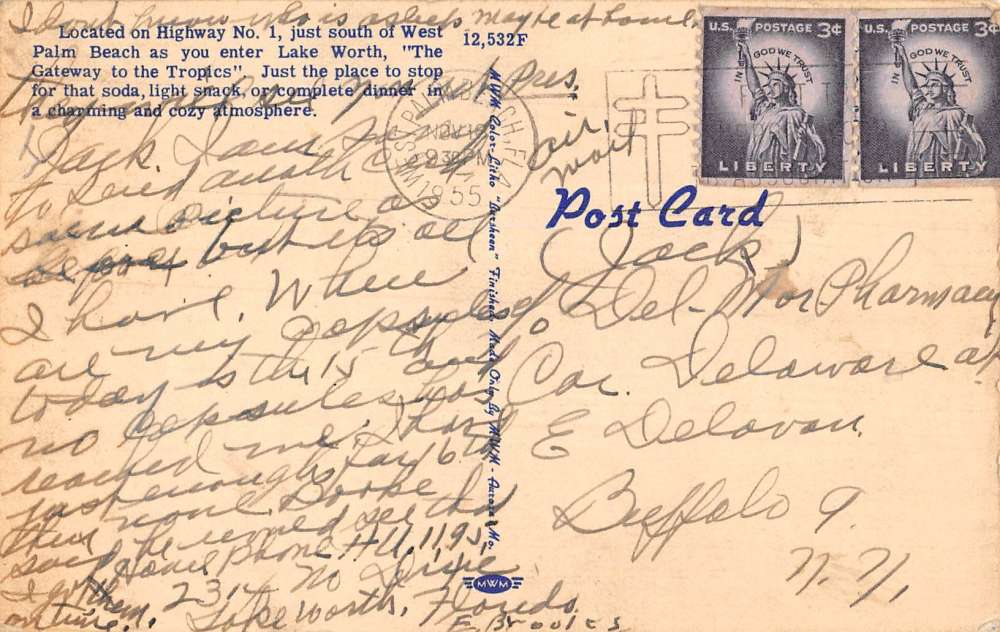 I don't know who is asleep maybe at home.
Located on Highway No. 1, just south of West
Palm Beach as you enter Lake Worth, "The
Gateway to the Tropics". Just the place to stop
for that soda, light snack, or complete dinner in
a charming and cozy atmosphere.
12,532F
Pres.
Jack I am
to send another card
same picture as
before but its all
I have. Where
are my capsules,
today is the 15 th and
no capsules has
reached me. I have
just enough for 6 to
then none.
said he would see that
I got them
on time.
Home Phone
231 No Dixie
Lake Worth, Florida
E Brooks
MWM Color-Litho "Larsheen" Finished. Made Only By MWM - Aurora Mo.
MWM
WEST PALM BEACH, FLA.
NOV 15
9 30 PM
1955
U.S. POSTAGE 3¢
IN GOD WE TRUST
LIBERTY
U.S. POSTAGE 3¢
IN GOD WE TRUST
LIBERTY
air
mail
Post Card
(Jack)
Del-Mor Pharmacy
Cor. Delaware at
E Delavan.
Buffalo 9.
N.Y.